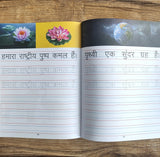 हमारा राष्ट्रीय पुष्प कमल है।
पृथ्वी एक सुंदर ग्रह है।